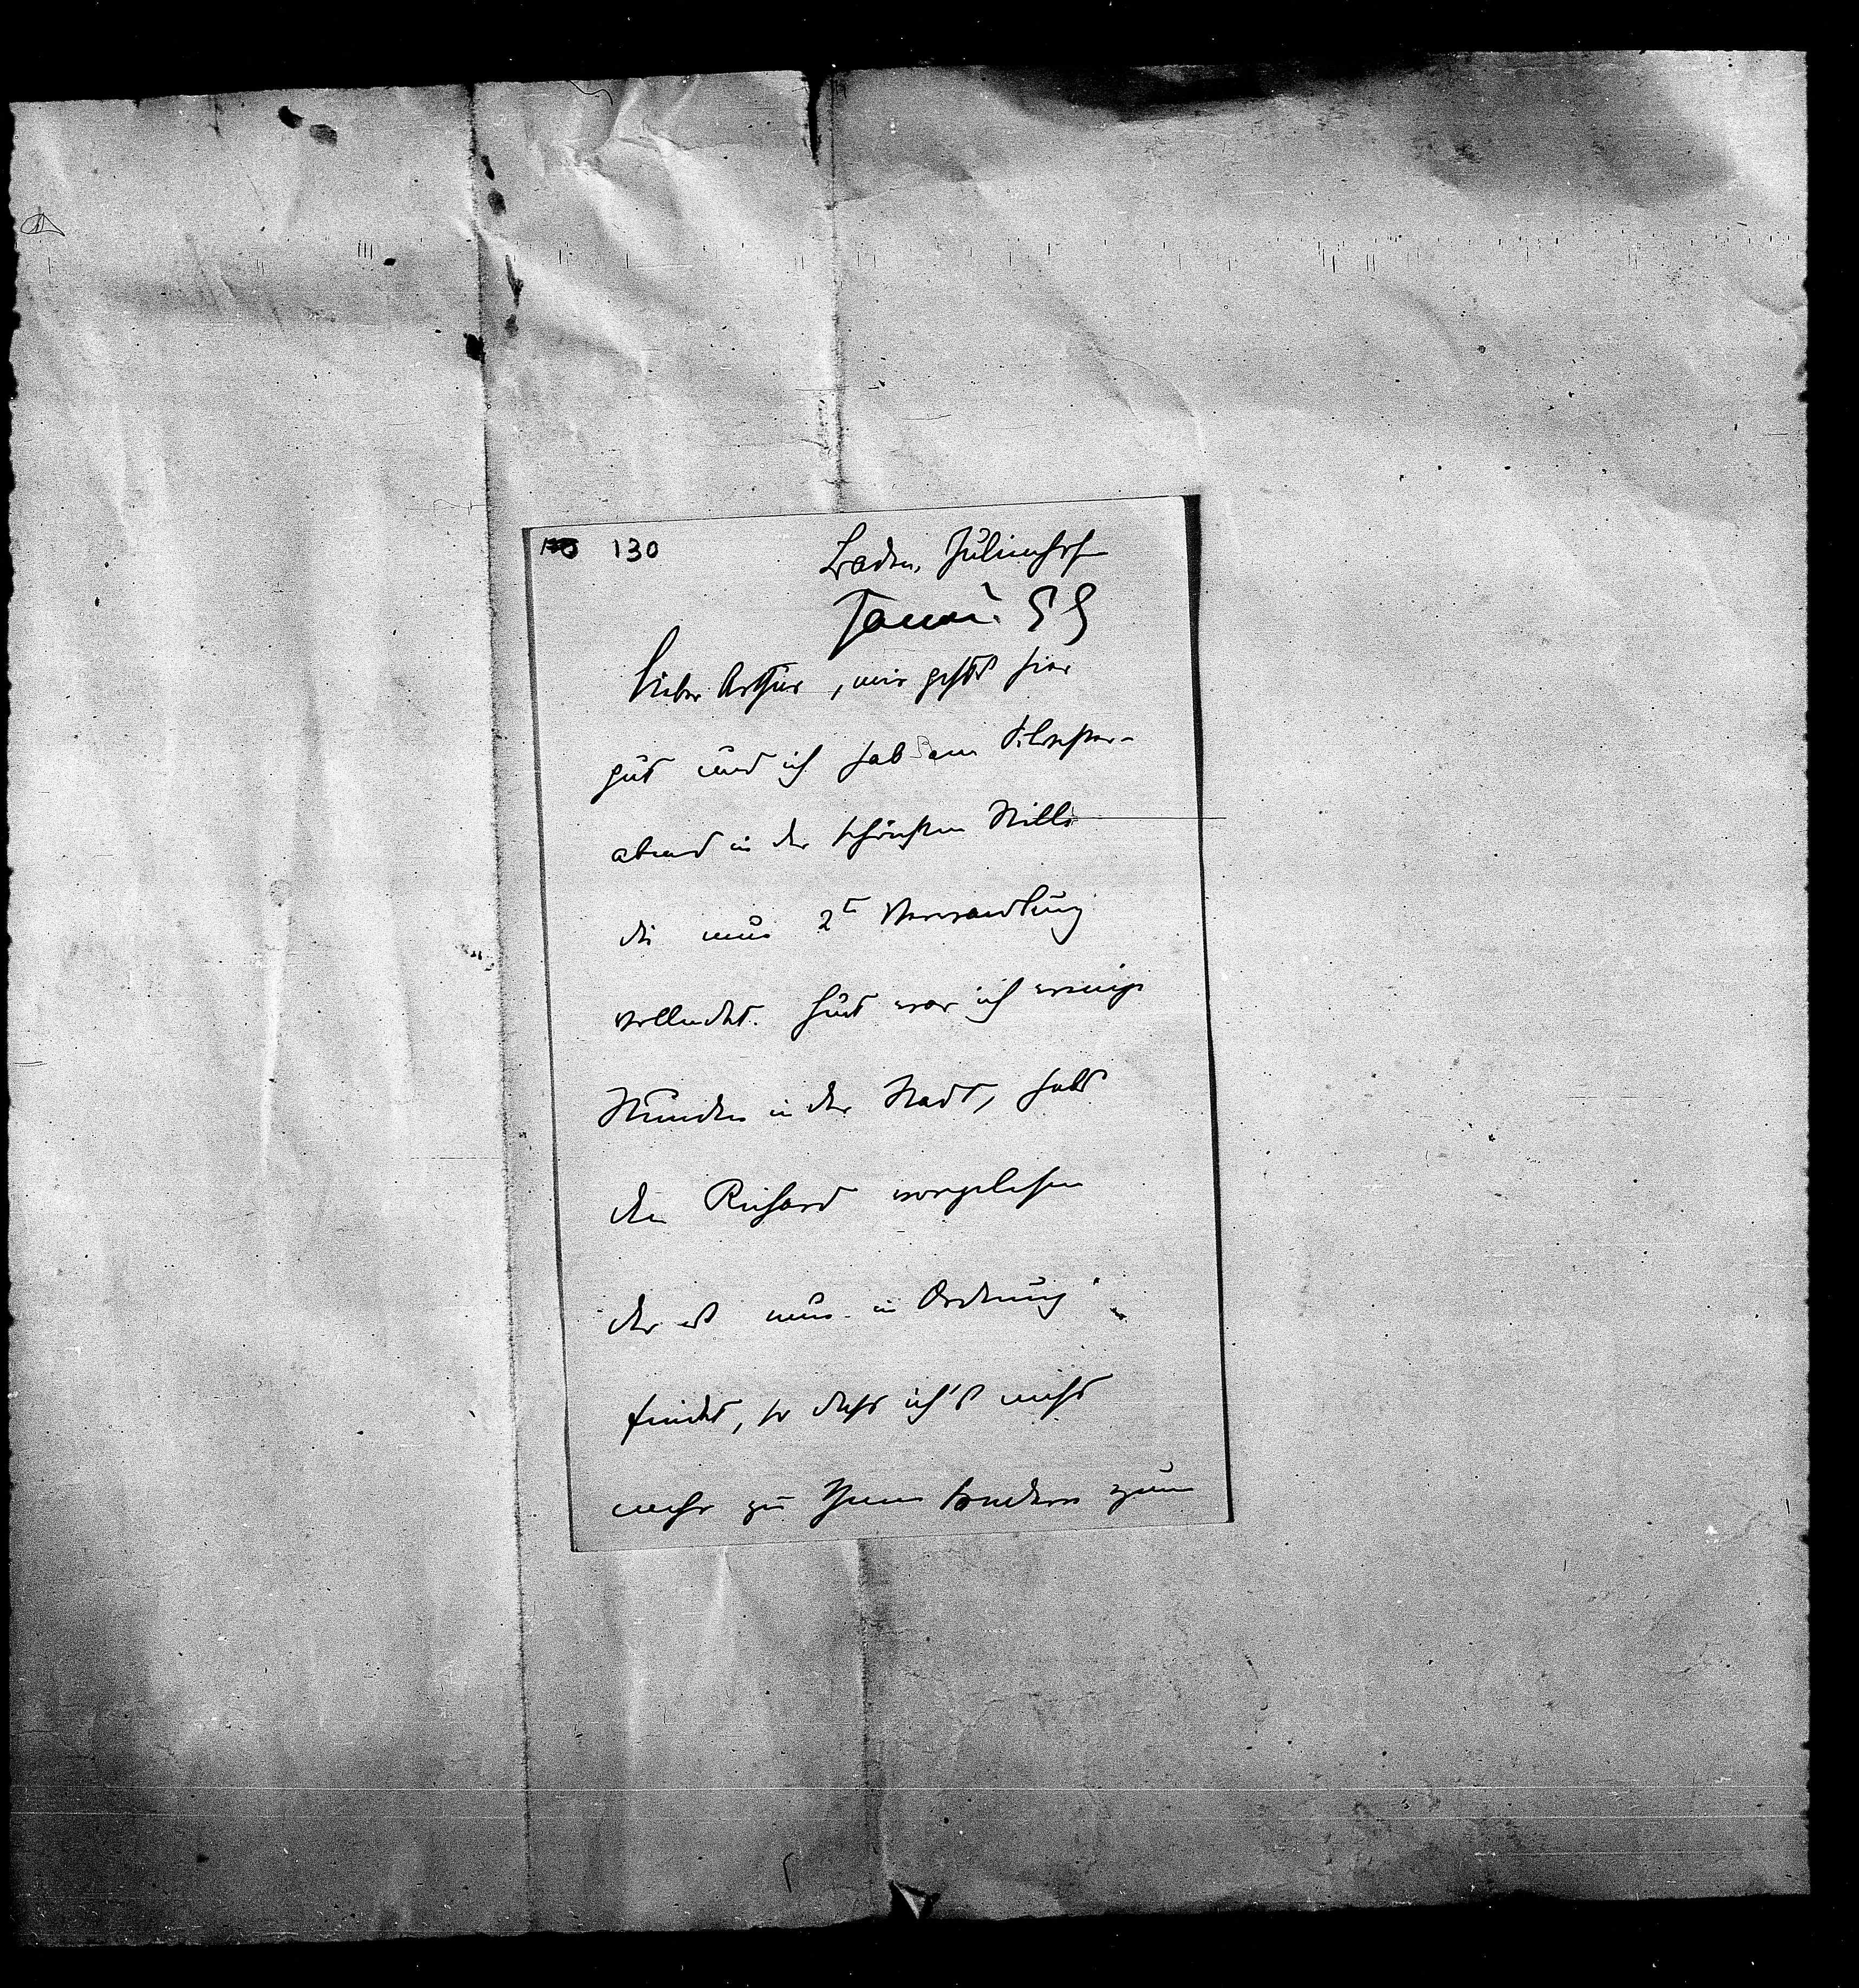 130
Baden, Julienhof
Januar. 99
Lieber Arthur, mir gehts hier
gut und ich hab am Silvester-
abend in der schönsten Stille
die neue 2te Verwandlung
vollendet. Heut war ich wenige
Stunden in der Stadt, habs
dem Richard vorgelesen
der es nun in Ordnung
findet, so dass ich's nicht
mehr zu Ihnen sondern zum